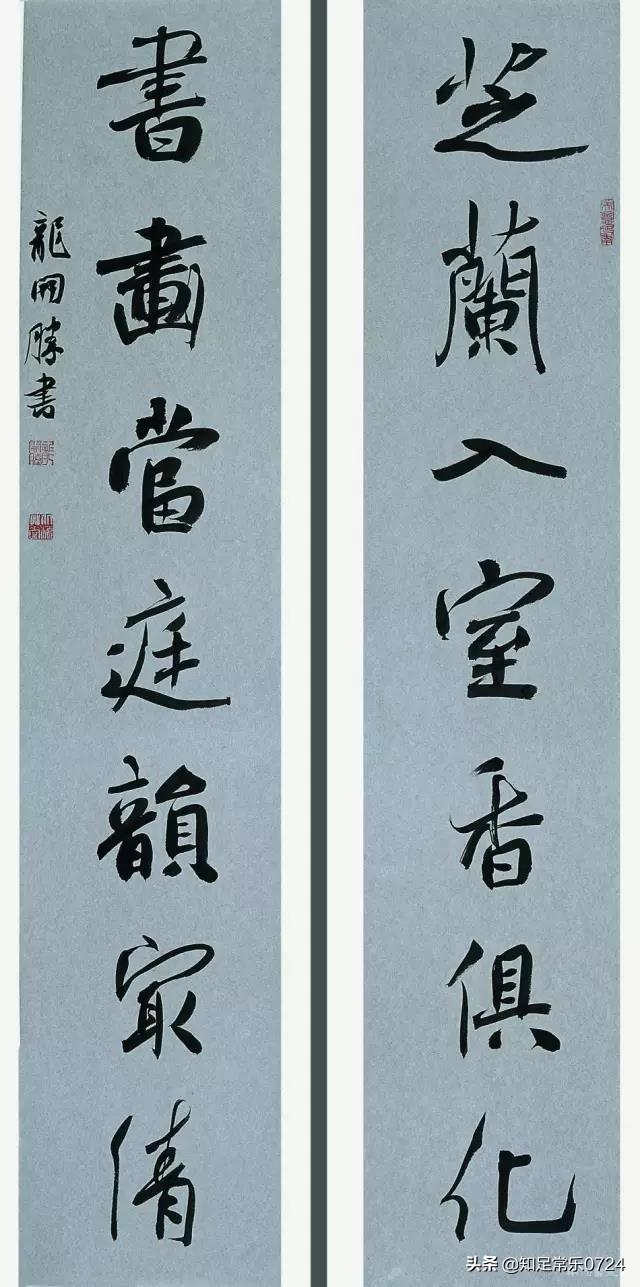 芝蘭入室香俱化
書畫當庭韻寂清
龍開勝書
头条 @知足常乐0724